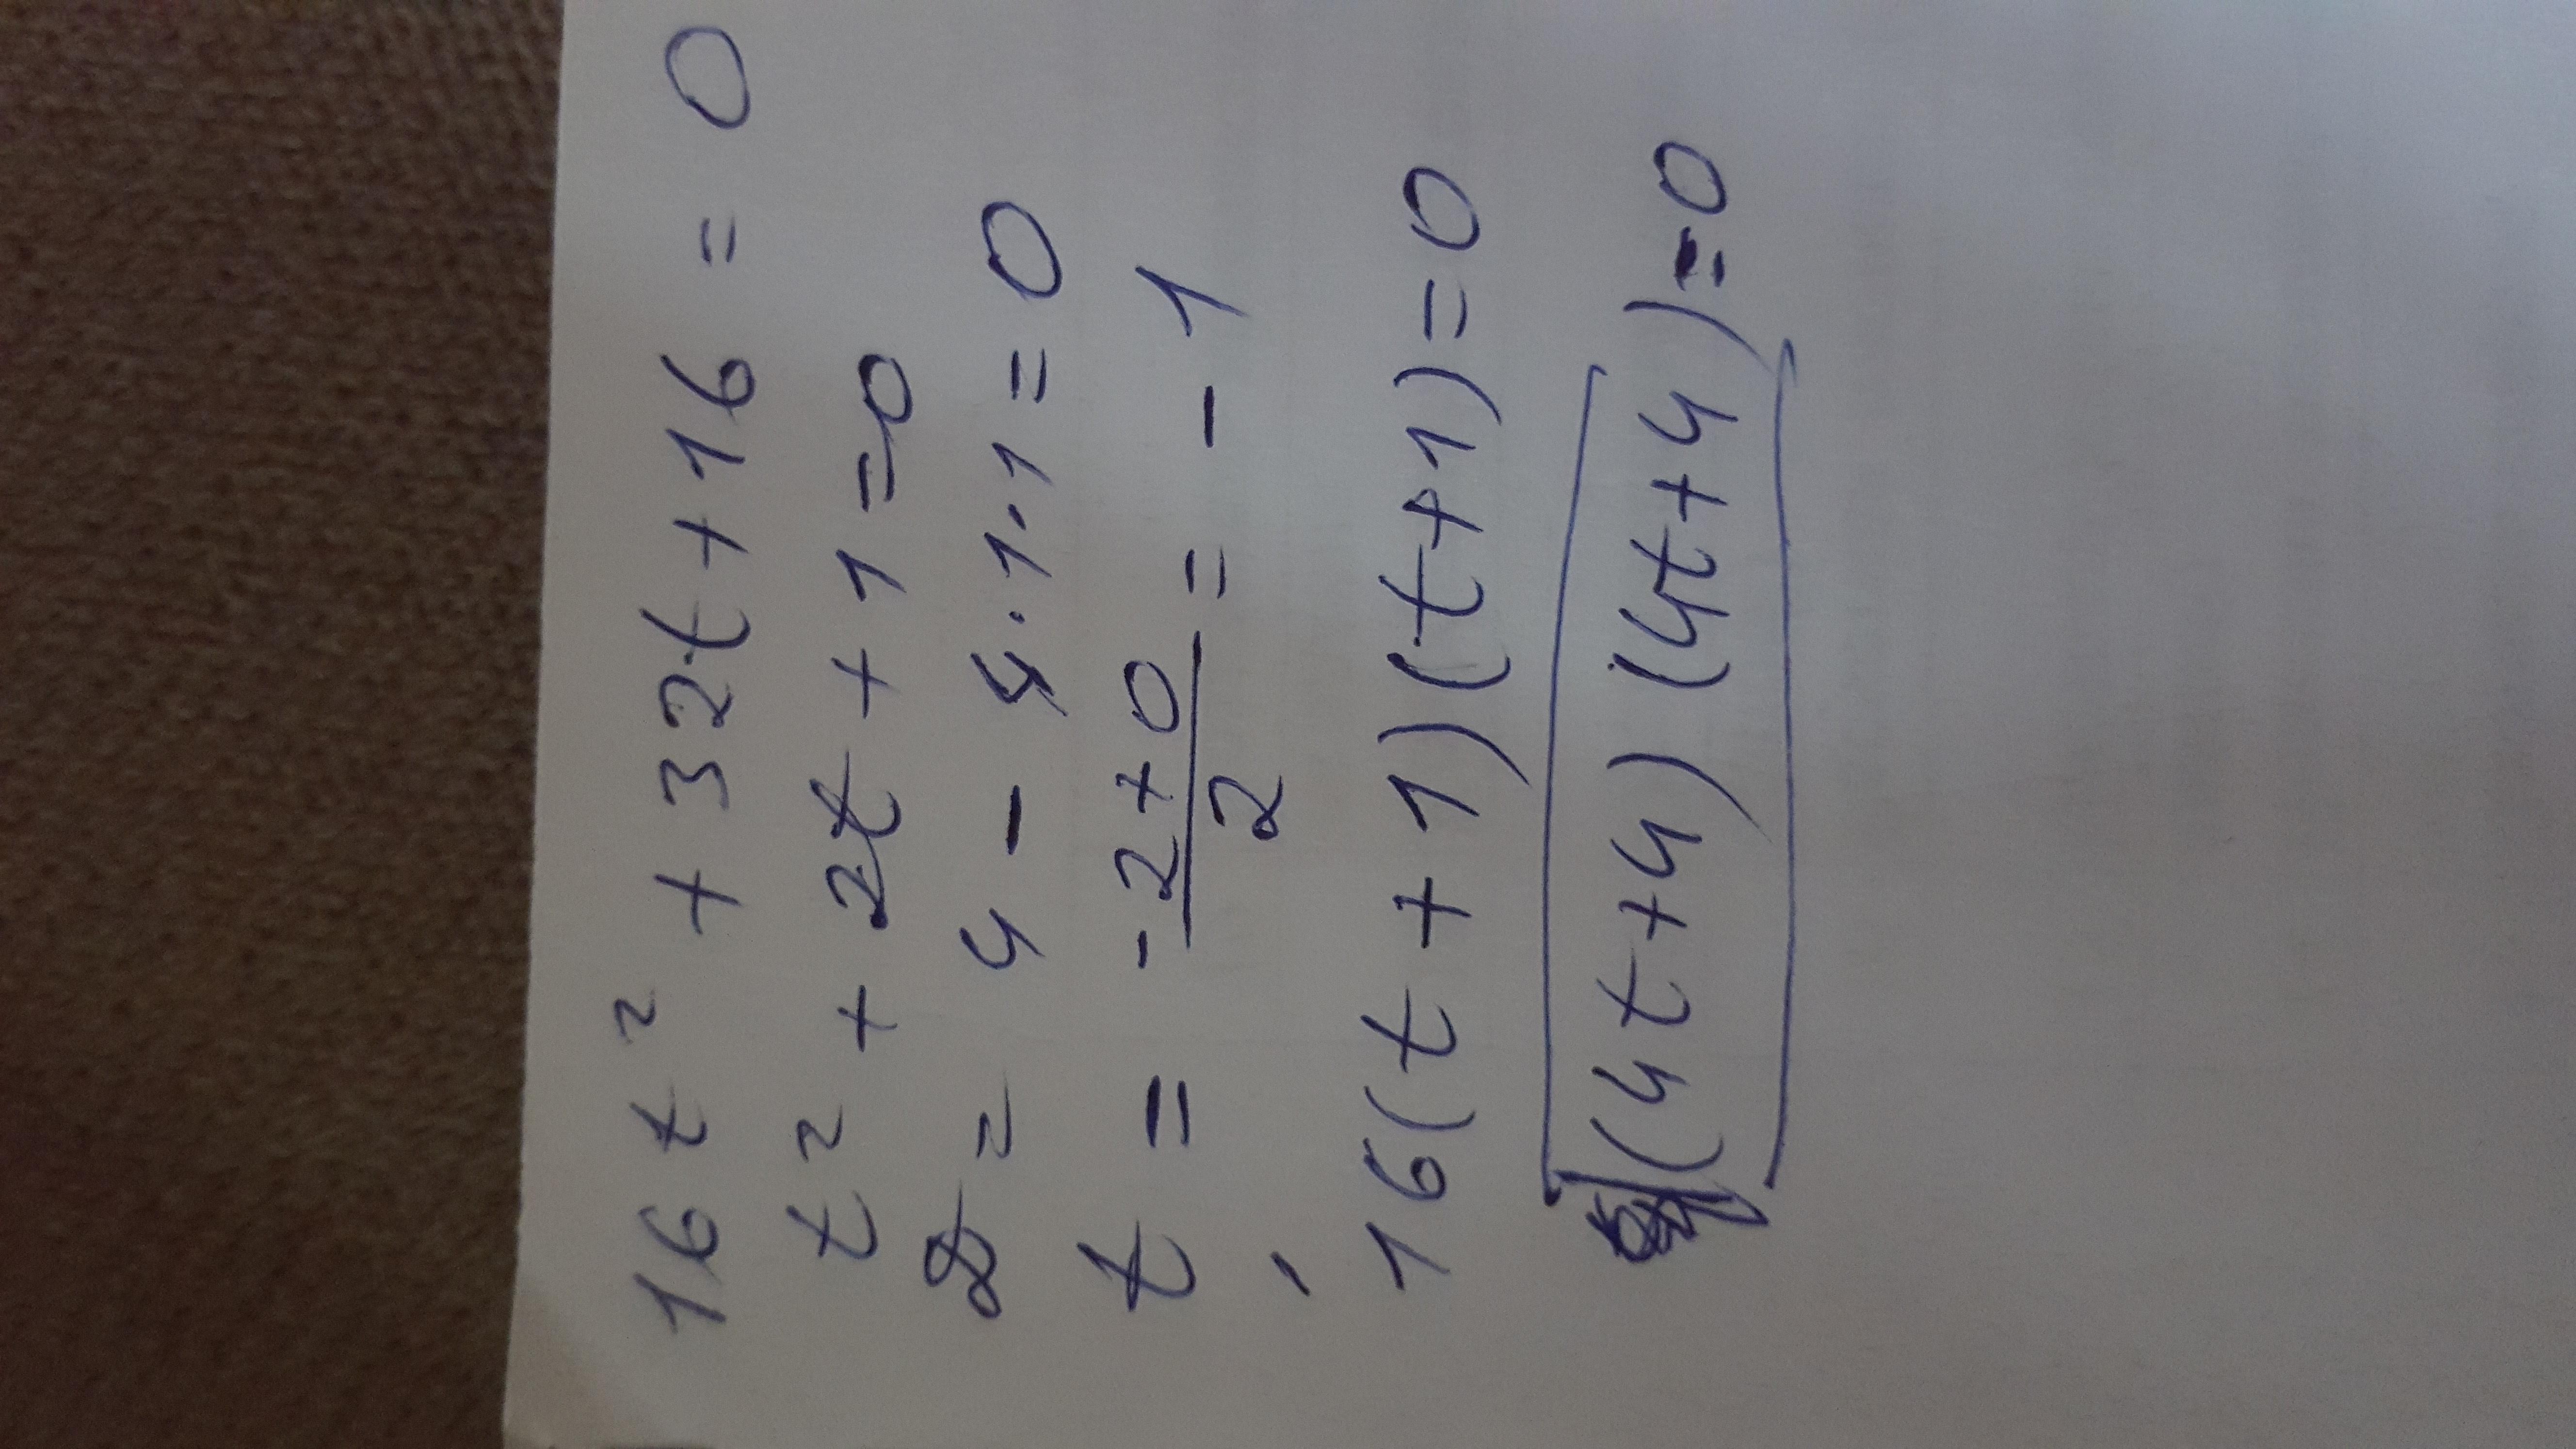 16t² + 32t + 16 = 0
t² + 2t + 1 = 0
D = 4 - 4·1·1 = 0
t = -2+0/2 = -1
16(t+1)(t+1)=0
(4t+4)(4t+4)=0